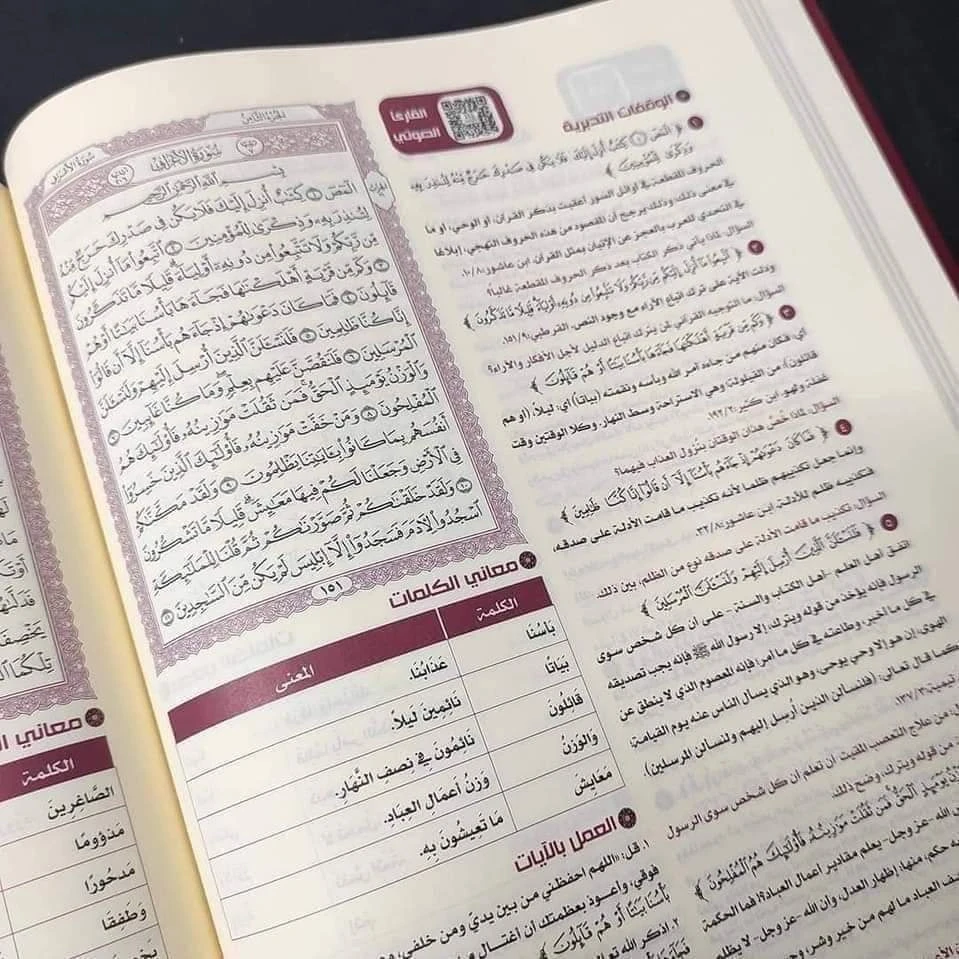 الجزء الثامن
سورة الأعراف
سُورَةُ الأَعْرَافِ
بِسْمِ اللَّهِ الرَّحْمَٰنِ الرَّحِيمِ
الٓمٓصٓ ١ كِتَٰبٌ أُنزِلَ إِلَيْكَ فَلَا يَكُن فِى صَدْرِكَ حَرَجٌ مِّنْهُ
لِتُنذِرَ بِهِۦ وَذِكْرَىٰ لِلْمُؤْمِنِينَ ٢ ٱتَّبِعُوا۟ مَآ أُنزِلَ إِلَيْكُم
مِّن رَّبِّكُمْ وَلَا تَتَّبِعُوا۟ مِن دُونِهِۦٓ أَوْلِيَآءَ قَلِيلًا مَّا تَذَكَّرُونَ
٣ وَكَم مِّن قَرْيَةٍ أَهْلَكْنَٰهَا فَجَآءَهَا بَأْسُنَا بَيَٰتًا أَوْ هُمْ
قَآئِلُونَ ٤ فَمَا كَانَ دَعْوَىٰهُمْ إِذْ جَآءَهُم بَأْسُنَآ إِلَّآ أَن قَالُوٓا۟
إِنَّا كُنَّا ظَٰلِمِينَ ٥ فَلَنَسْـَٔلَنَّ ٱلَّذِينَ أُرْسِلَ إِلَيْهِمْ وَلَنَسْـَٔلَنَّ
ٱلْمُرْسَلِينَ ٦ فَلَنَقُصَّنَّ عَلَيْهِم بِعِلْمٍ وَمَا كُنَّا غَآئِبِينَ ٧
وَٱلْوَزْنُ يَوْمَئِذٍ ٱلْحَقُّ فَمَن ثَقُلَتْ مَوَٰزِينُهُۥ فَأُو۟لَٰٓئِكَ هُمُ
ٱلْمُفْلِحُونَ ٨ وَمَنْ خَفَّتْ مَوَٰزِينُهُۥ فَأُو۟لَٰٓئِكَ ٱلَّذِينَ خَسِرُوٓا۟
أَنفُسَهُم بِمَا كَانُوا۟ بِـَٔايَٰتِنَا يَظْلِمُونَ ٩ وَلَقَدْ مَكَّنَّٰكُمْ
فِى ٱلْأَرْضِ وَجَعَلْنَا لَكُمْ فِيهَا مَعَٰيِشَ قَلِيلًا مَّا تَشْكُرُونَ
١٠ وَلَقَدْ خَلَقْنَٰكُمْ ثُمَّ صَوَّرْنَٰكُمْ ثُمَّ قُلْنَا لِلْمَلَٰٓئِكَةِ
ٱسْجُدُوا۟ لِـَٔادَمَ فَسَجَدُوٓا۟ إِلَّآ إِبْلِيسَ لَمْ يَكُن مِّنَ ٱلسَّٰجِدِينَ ١١
١٥١
القارئ
الصوتي
الوقفات التدبرية
١ ﴿ الٓمٓصٓ ١ كِتَٰبٌ أُنزِلَ إِلَيْكَ فَلَا يَكُن فِى صَدْرِكَ حَرَجٌ مِّنْهُ لِتُنذِرَ بِهِۦ
وَذِكْرَىٰ لِلْمُؤْمِنِينَ ﴾
الحروف المقطعة في أوائل السور أعقبت بذكر القرآن، أو الوحي، أو ما
في معنى ذلك، وذلك يرجح أن المقصود من هذه الحروف التهجي، إبلاغا
في التحدي للعرب بالعجز عن الإتيان بمثل القرآن. ابن عاشور:٨/١٠.
السؤال: لماذا يأتي ذكر الكتاب بعد ذكر الحروف المقطعة غالباً؟
٢ ﴿ ٱتَّبِعُوا۟ مَآ أُنزِلَ إِلَيْكُم مِّن رَّبِّكُمْ وَلَا تَتَّبِعُوا۟ مِن دُونِهِۦٓ أَوْلِيَآءَ قَلِيلًا مَّا تَذَكَّرُونَ ﴾
ودلت الآية على ترك اتباع الآراء مع وجود النص. القرطبي:٩/١٥١.
السؤال: ما التوجيه القرآني لمن يترك اتباع الدليل لأجل الأفكار والآراء؟
٣ ﴿ وَكَم مِّن قَرْيَةٍ أَهْلَكْنَٰهَا فَجَآءَهَا بَأْسُنَا بَيَٰتًا أَوْ هُمْ قَآئِلُونَ ﴾
أي: فكان منهم من جاءه أمر الله وبأسه ونقمته (بياتا) أي: ليلاً، (أو هم
قائلون): من القيلولة وهي الاستراحة وسط النهار، وكلا الوقتين وقت
غفلة ولهو. ابن كثير:٢/١٩٢.
السؤال: لماذا خُصَّ هذان الوقتان بنزول العذاب فيهما؟
٤ ﴿ فَمَا كَانَ دَعْوَىٰهُمْ إِذْ جَآءَهُم بَأْسُنَآ إِلَّآ أَن قَالُوٓا۟ إِنَّا كُنَّا ظَٰلِمِينَ ﴾
وإنما جعل تكذيبهم ظلما لأنه تكذيب ما قامت الأدلة على صدقه،
فتكذيبه ظلم للأدلة. ابن عاشور:٨/٢٢.
السؤال: تكذيب ما قامت الأدلة على صدقه نوع من الظلم، بين ذلك.
٥ ﴿ فَلَنَسْـَٔلَنَّ ٱلَّذِينَ أُرْسِلَ إِلَيْهِمْ وَلَنَسْـَٔلَنَّ ٱلْمُرْسَلِينَ ﴾
اتفق أهل العلم -أهل الكتاب والسنة- على أن كل شخص سوى
الرسول فإنه يؤخذ من قوله ويترك، إلا رسول الله ﷺ فإنه يجب تصديقه
في كل ما أخبر، وطاعته في كل ما أمر؛ فإنه المعصوم الذي لا ينطق عن
الهوى، إن هو إلا وحي يوحى، وهو الذي يسأل الناس عنه يوم القيامة،
كما قال تعالى: (فلنسألن الذين أرسل إليهم ولنسألن المرسلين).
تيمية:٣/١٣٧
من علاج التعصب المقيت أن تعلم أن كل شخص سوى الرسول
من قوله ويترك، وضح ذلك.
يَوْمَئِذٍ ٱلْحَقُّ فَمَن ثَقُلَتْ مَوَٰزِينُهُۥ فَأُو۟لَٰٓئِكَ هُمُ ٱلْمُفْلِحُونَ ﴾
الله -عز وجل- يعلم مقادير أعمال العباد؛ فما الحكمة
فيه حكم، منها: إظهار العدل، وأن الله -عز وجل- لا يظلم
العباد ما لهم من خير وشر،
معاني الكلمات
الكلمة المعنى
بَأْسُنَا عَذَابُنَا.
بَيَاتًا نَائِمِينَ لَيْلاً.
قَائِلُونَ نَائِمُونَ فِي نِصْفِ النَّهَارِ.
وَالوَزْنُ وَزْنُ أَعْمَالِ العِبَادِ.
مَعَايِشَ مَا تَعِيشُونَ بِهِ.
العمل بالآيات
١. قل: «اللهم احفظني من بين يديّ ومن خلفي،
فوقي، وأعوذ بعظمتك أن أغتال من
بَأْسُنَا بَيَٰتًا أَوْ هُمْ قَآئِلُونَ ﴾
٢. اذكر الله
معاني
الكلمة
الصَّاغِرِينَ
مَذْؤُومًا
مَدْحُورًا
وَطَفِقَا